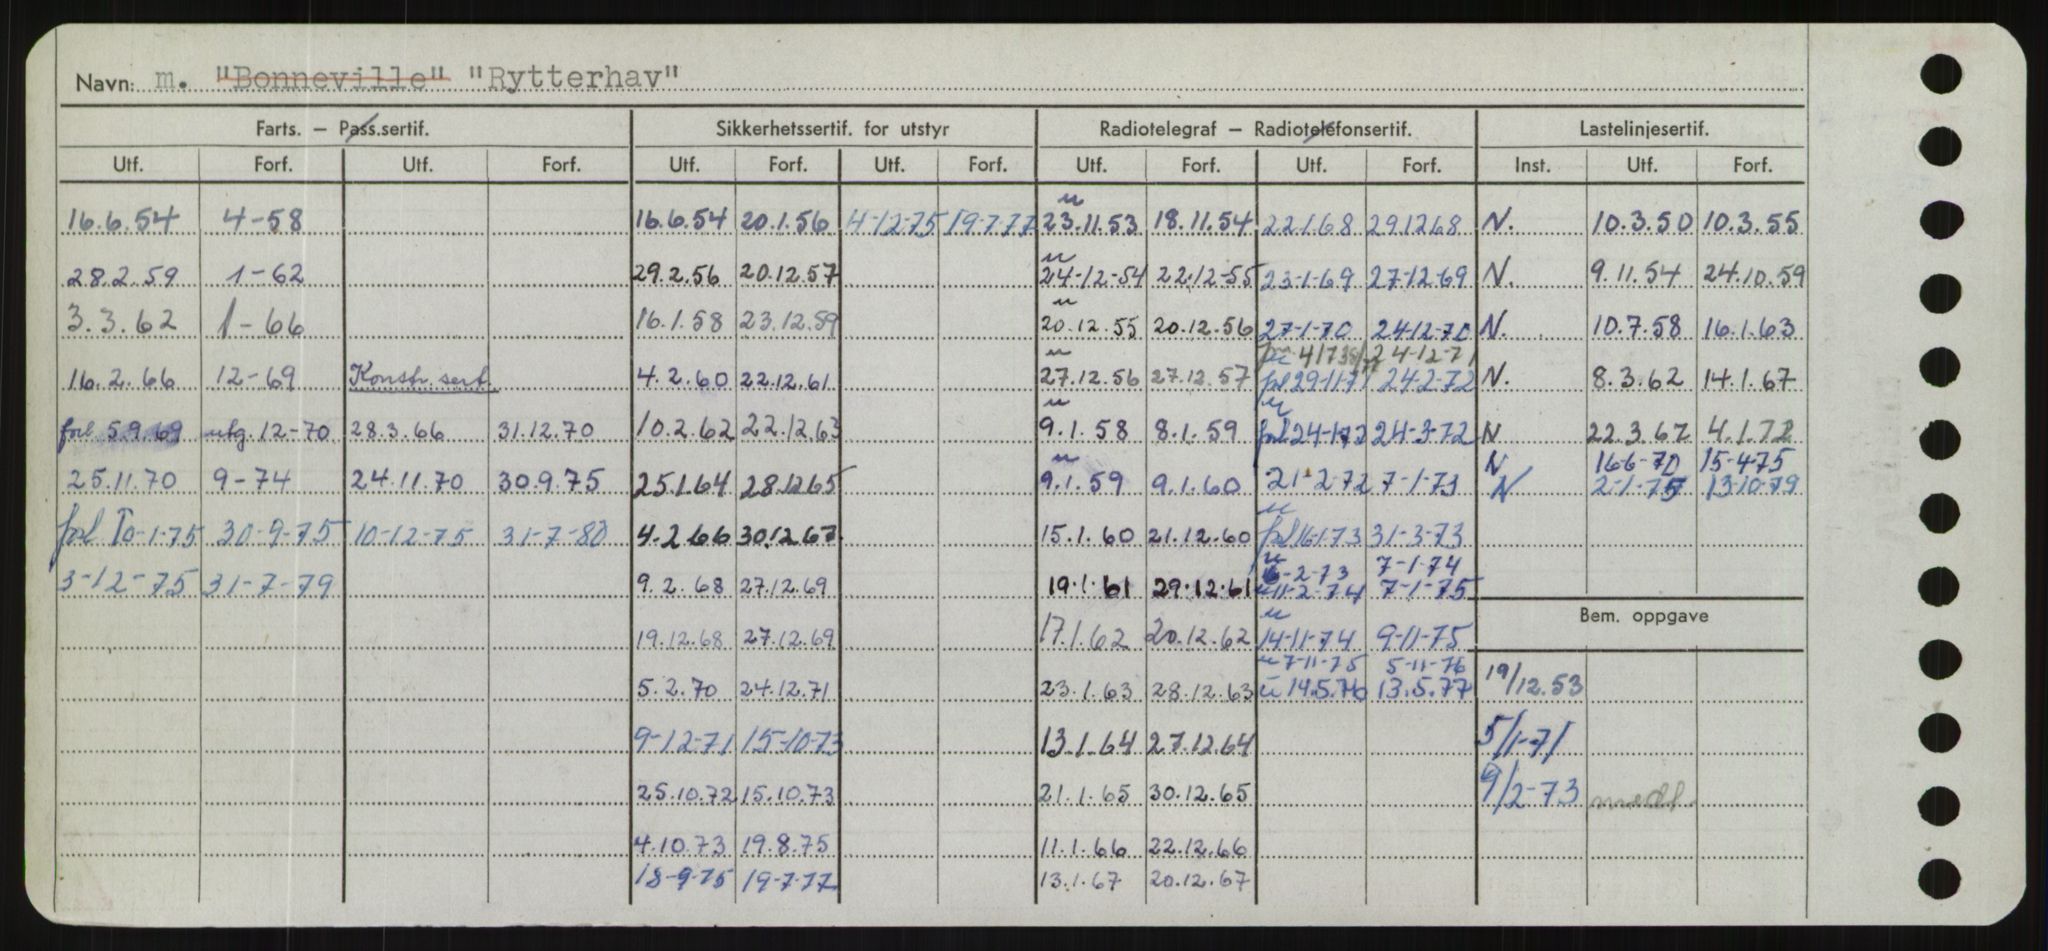 Navn: m. "Bonneville" "Rytterhav"
Farts. – Pass.sertif. Sikkerhetssertif. for utstyr Radiotelegraf – Radiotelefonsertif. Lastelinjesertif.
Utf. Forf. Utf. Forf. Utf. Forf. Utf. Forf. Utf. Forf. Utf. Forf. Inst. Utf. Forf.
u
16.6.54 4-58 16.6.54 20.1.56 4-12-75 19-7-77 23.11.53 18.11.54 22.1.68 29.12.68 N. 10.3.50 10.3.55
u
28.2.59 1-62 29.2.56 20.12.57 24-12-54 22-12-55 23-1-69 27-12-69 N. 9.11.54 24.10.59
u
3.3.62 1-66 16.1.58 23.12.59 20.12.55 20.12.56 27-1-70 24-12-70 N. 10.7.58 16.1.63
u 24-12-71
16.2.66 12-69 Konstr.sert. 4.2.60 22.12.61 27.12.56 27.12.57 forl 29-11-71 24-2-72 N. 8.3.62 14.1.67
u u
forl. 5.9.69 utg. 12-70 28.3.66 31.12.70 10.2.62 22.12.63 9.1.58 8.1.59 forl 24-1-72 24-3-72 N 22.3.67 4.1.72
u N 16-6-70 15-4-75
25.11.70 9-74 24.11.70 30.9.75 25.1.64 28.12.65 9.1.59 9.1.60 21-2-72 7-1-73 N 2-1-75 13-10-79
u
forl 10-1-75 30-9-75 10-12-75 31-7-80 4.2.66 30.12.67 15.1.60 21.12.60 forl 16-1-73 31-3-73
u 6-2-73 7-1-74
3-12-75 31-7-79 9.2.68 27.12.69 19.1.61 29.12.61 u 11-2-74 7-1-75
Bem. oppgave
u
19.12.68 27.12.69 17.1.62 20.12.62 14-11-74 9-11-75
u 7-11-75 5-11-76
5.2.70 24.12.71 23.1.63 28.12.63 u 14.5.76 13.5.77 19/12.53
9-12-71 15-10-73 13.1.64 27.12.64 5/1-71
25.10.72 15.10.73 21.1.65 30.12.65 9/2-73 medf.
4.10.73 19.8.75 11.1.66 22.12.66
18-9-75 19-7-77 13.1.67 20.12.67